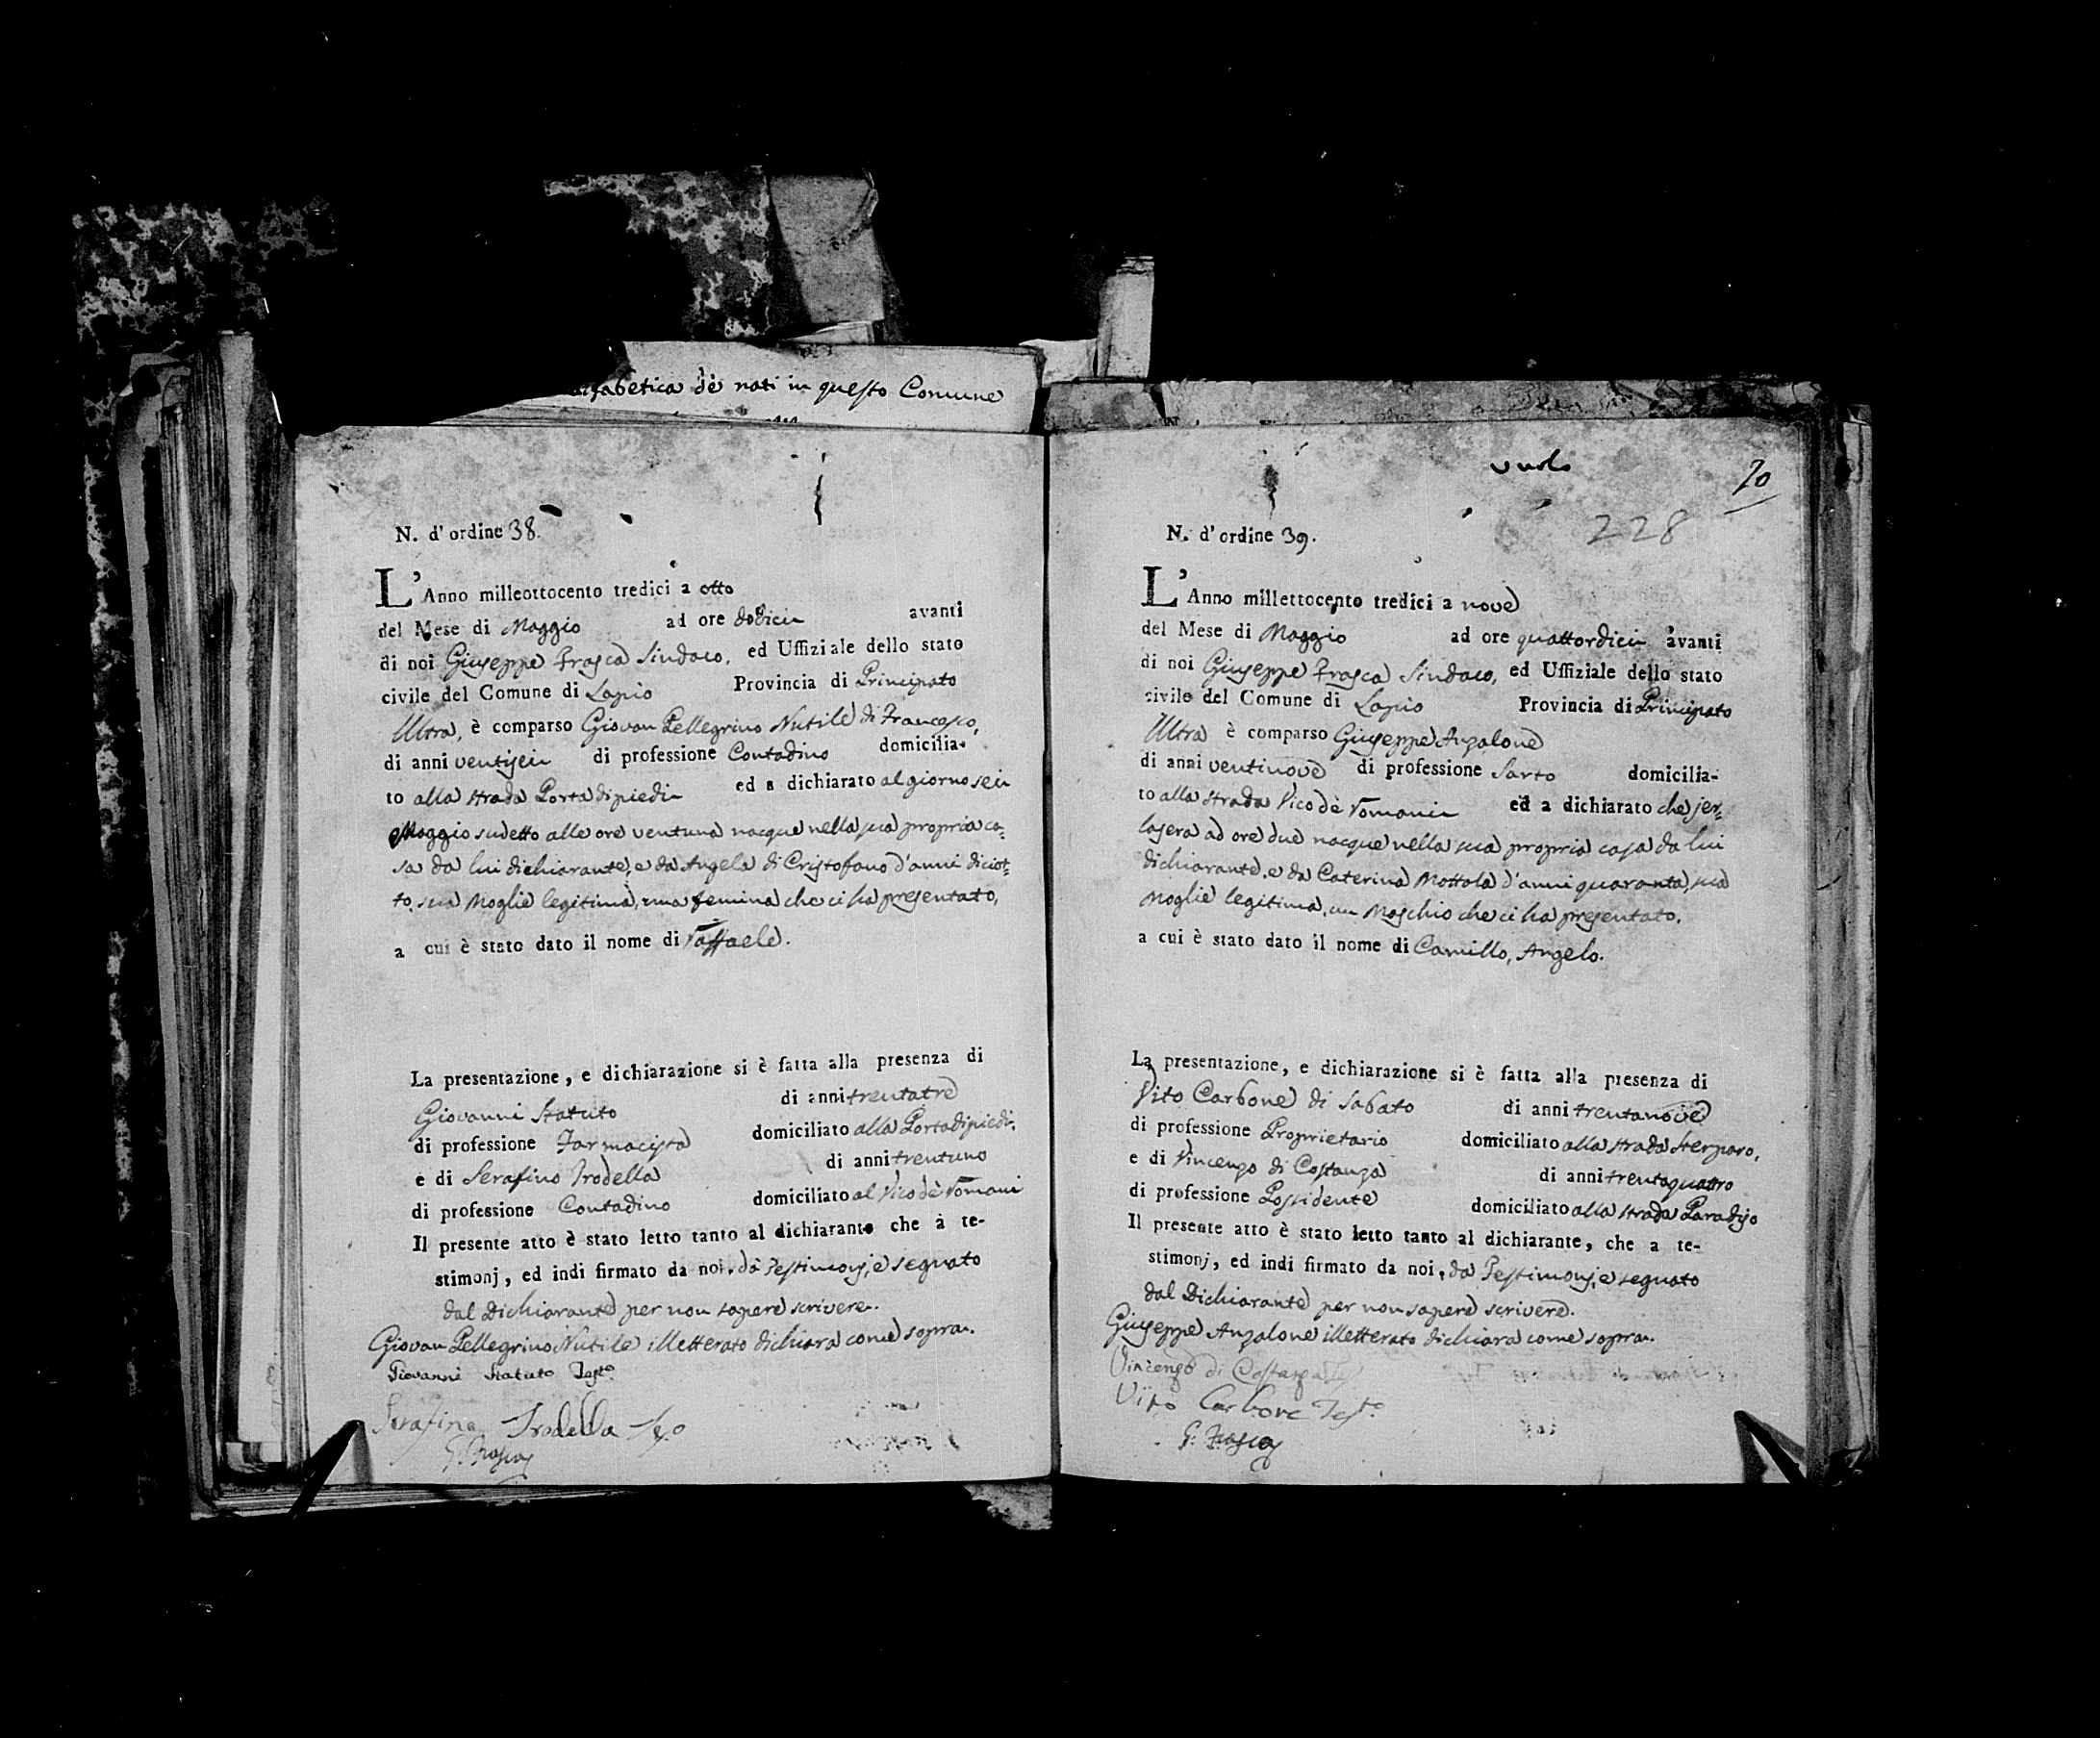 alfabetica dè nati in questo Comune
N. d'ordine 38.
L'Anno milleottocento tredici a otto
del Mese di Maggio ad ore dodici avanti
di noi Giuseppe Frasca Sindaco, ed Uffiziale dello stato
civile del Comune di Lapio Provincia di Principato
Ultra, è comparso Giovan Pellegrino Nutile di Francesco,
di anni ventisei di professione Contadino domicilia-
to alla strada Porta di piedi ed a dichiarato al giorno sei
Maggio sudetto alle ore ventuna nacque nella sua propria ca-
sa da lui dichiarante, e da Angela di Cristofano d'anni diciot-
to, sua Moglie legitima, una femina che ci ha presentato,
a cui è stato dato il nome di Raffaele.
La presentazione, e dichiarazione si è fatta alla presenza di
Giovanni Statuto di anni trentatre
di professione Farmacista domiciliato alla Portadipiedi,
e di Serafino Trodella di anni trentuno
di professione Contadino domiciliato al Vico dè Romani
Il presente atto è stato letto tanto al dichiarante che a te-
stimonj, ed indi firmato da noi, da Testimonj, e segnato
dal Dichiarante per non sapere scrivere.
Giovan Pellegrino Nutile illetterato dichiara come sopra.
Giovanni Statuto Testo
Serafino Trodella
G. Frasca
70
228
N. d'ordine 39.
L'Anno millettocento tredici a nove
del Mese di Maggio ad ore quattordici avanti
di noi Giuseppe Frasca Sindaco, ed Uffiziale dello stato
civile del Comune di Lapio Provincia di Principato
Ultra è comparso Giuseppe Anzalone
di anni ventinove di professione Sarto domicilia-
to alla strada Vico dè Romani ed a dichiarato che jer-
lasera ad ore due nacque nella sua propria casa da lui
dichiarante, e da Caterina Mottola d'anni quaranta, sua
Moglie legitima, un Maschio che ci ha presentato,
a cui è stato dato il nome di Camillo, Angelo.
La presentazione, e dichiarazione si è fatta alla presenza di
Vito Carbone di Sabato di anni trentanove
di professione Proprietario domiciliato alla strada Sterparo,
e di Vincenzo di Costanza di anni trentaquattro
di professione Possidente domiciliato alla strada Paradiso
Il presente atto è stato letto tanto al dichiarante, che a te-
stimonj, ed indi firmato da noi, da Testimonj, e segnato
dal Dichiarante per non sapere scrivere.
Giuseppe Anzalone illetterato dichiara come sopra.
Vincenzo di Costanza
Vito Carbone Testo
G. Frasca